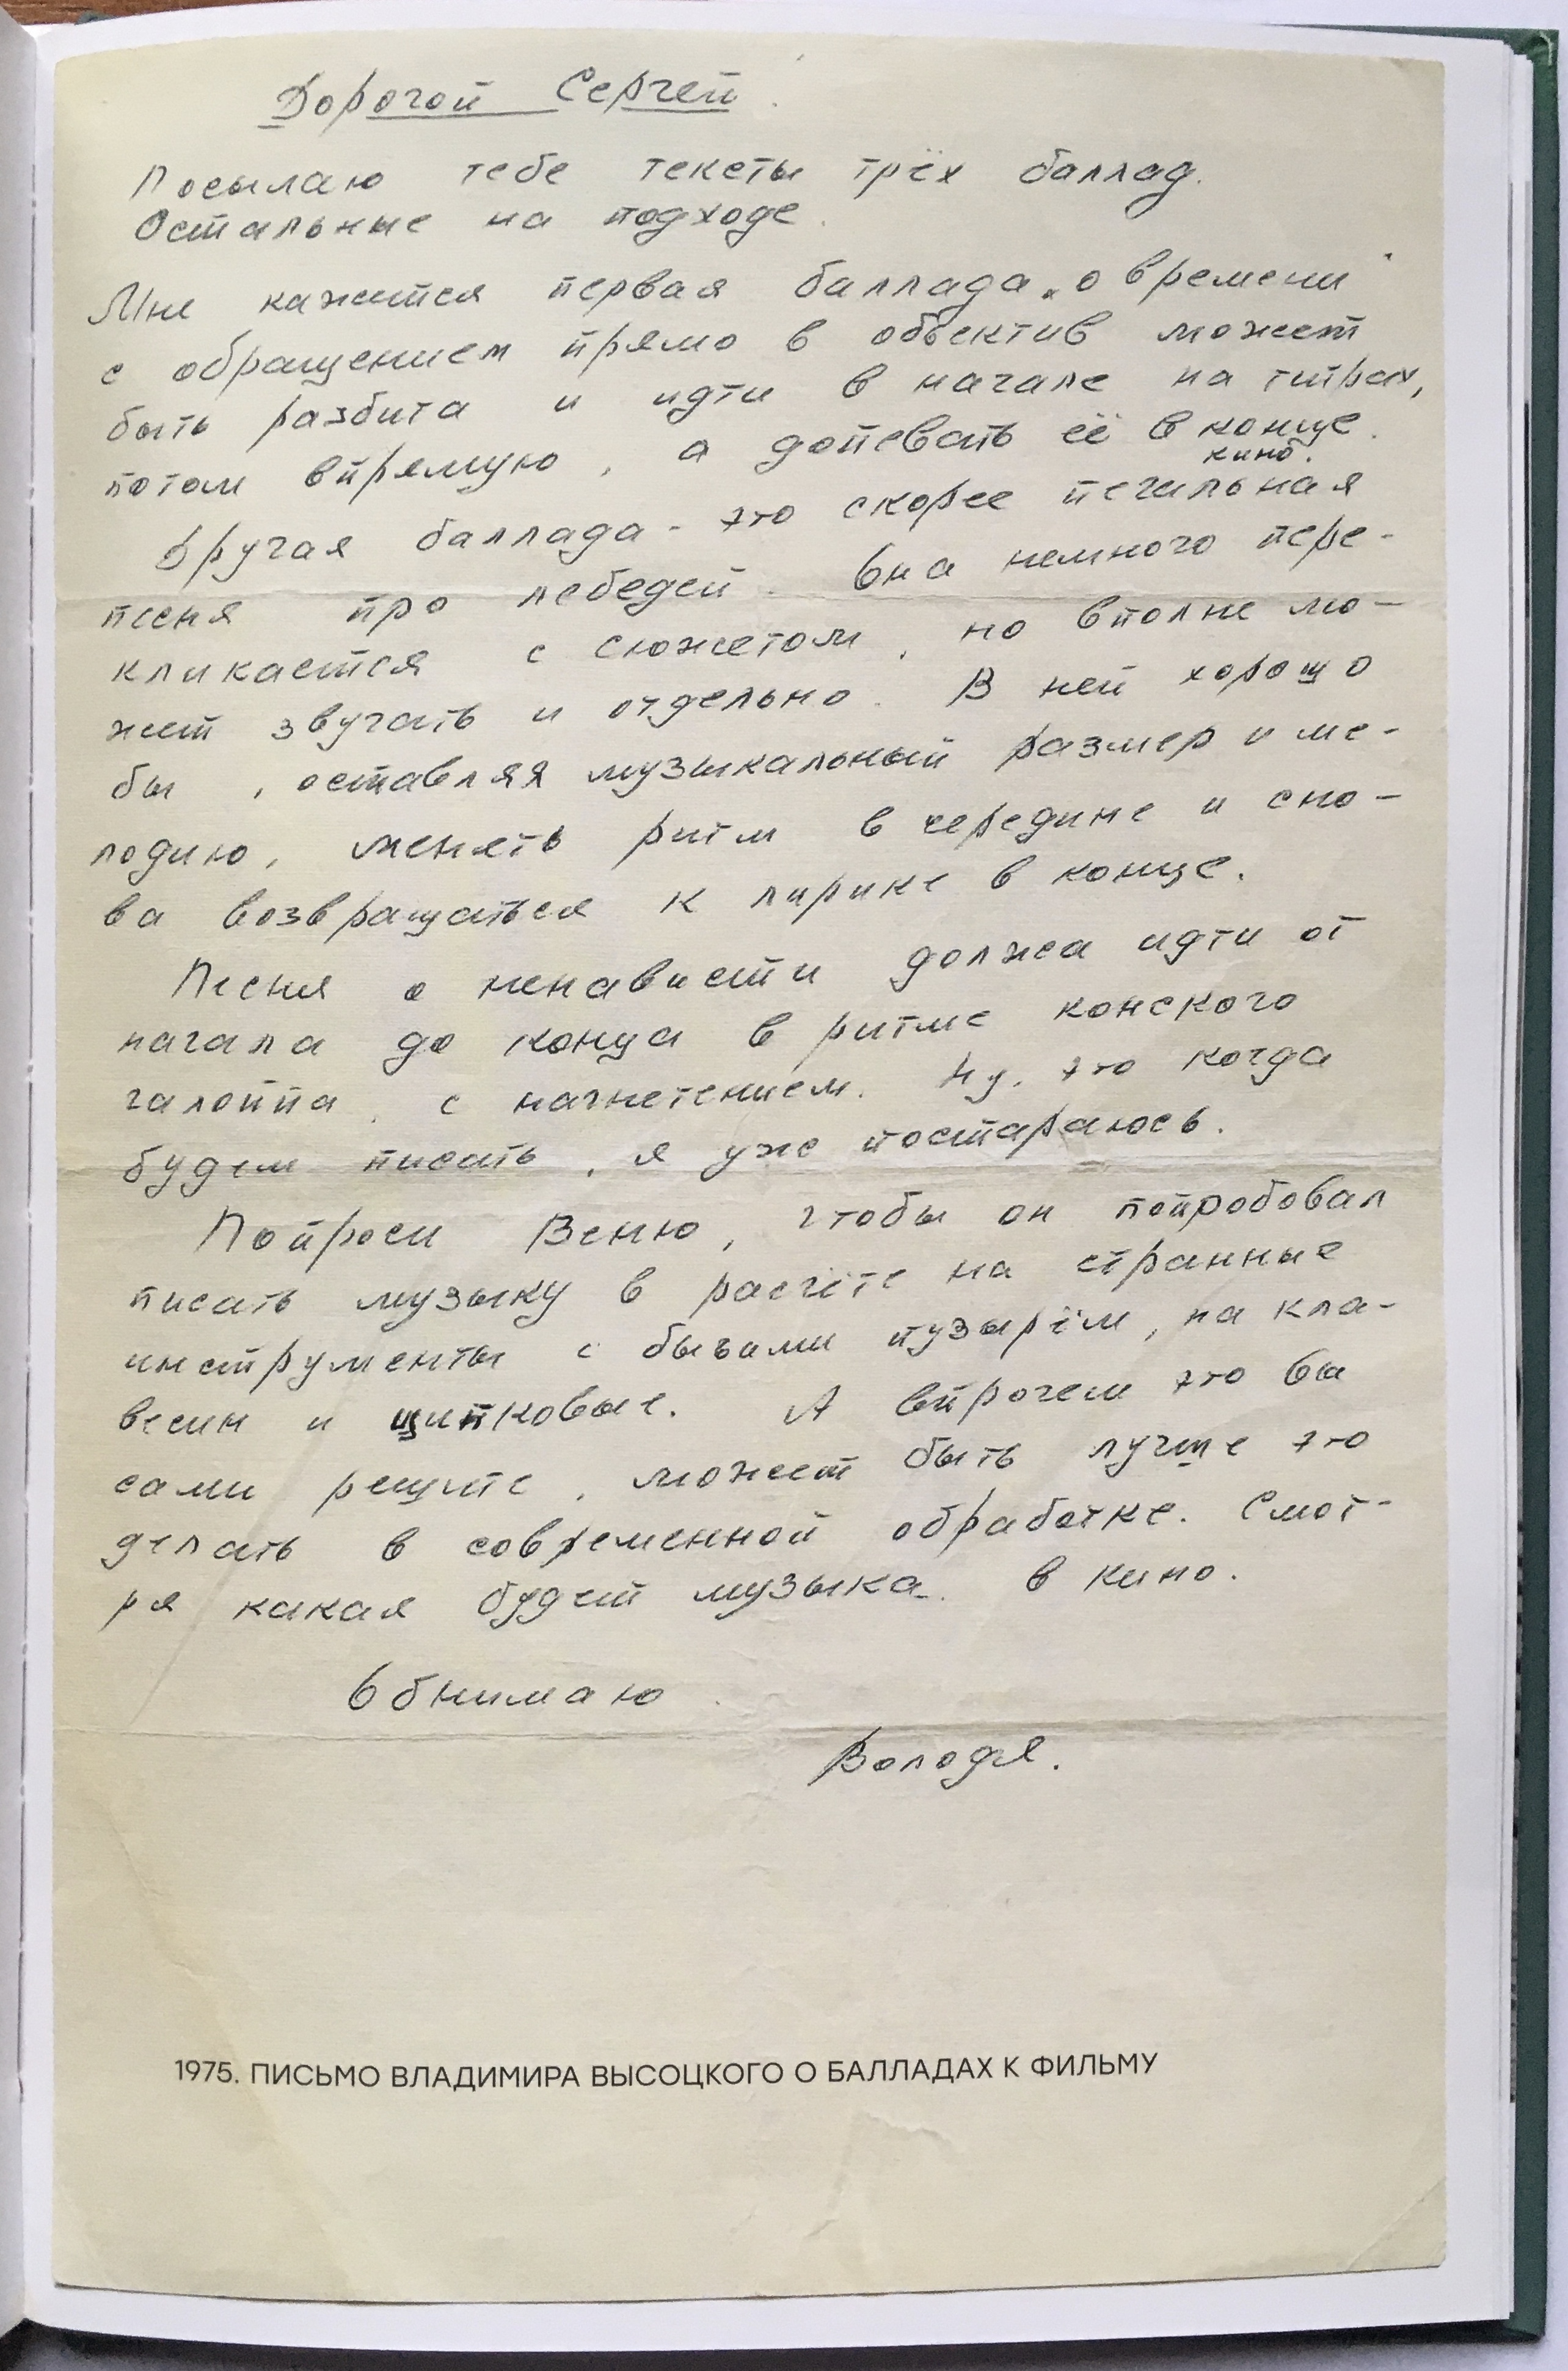 Дорогой Сергей.
Посылаю тебе тексты трёх баллад.
Остальные на подходе.
Мне кажется первая баллада „о времени"
с обращением прямо в объектив может
быть разбита и идти в начале на титрах,
потом впрямую, а допевать её в конце
кино.
Другая баллада - это скорее печальная
песня про лебедей. Она немного пере-
кликается с сюжетом, но вполне мо-
жет звучать и отдельно. В ней хорошо
бы, оставляя музыкальный размер и ме-
лодию, менять ритм в середине и сно-
ва возвращаться к лирике в конце.
Песня о ненависти должна идти от
начала до конца в ритме конского
галоппа, с нагнетением. Ну, это когда
будем писать, я уже постараюсь.
Попроси Веню, чтобы он попробовал
писать музыку в расчёте на странные
инструменты с бычьими пузырём, на кла-
весин и щипковые. А впрочем это вы
сами решите, может быть лучше это
делать в современной обработке. Смот-
ря какая будет музыка в кино.
Обнимаю.
Володя.
1975. ПИСЬМО ВЛАДИМИРА ВЫСОЦКОГО О БАЛЛАДАХ К ФИЛЬМУ